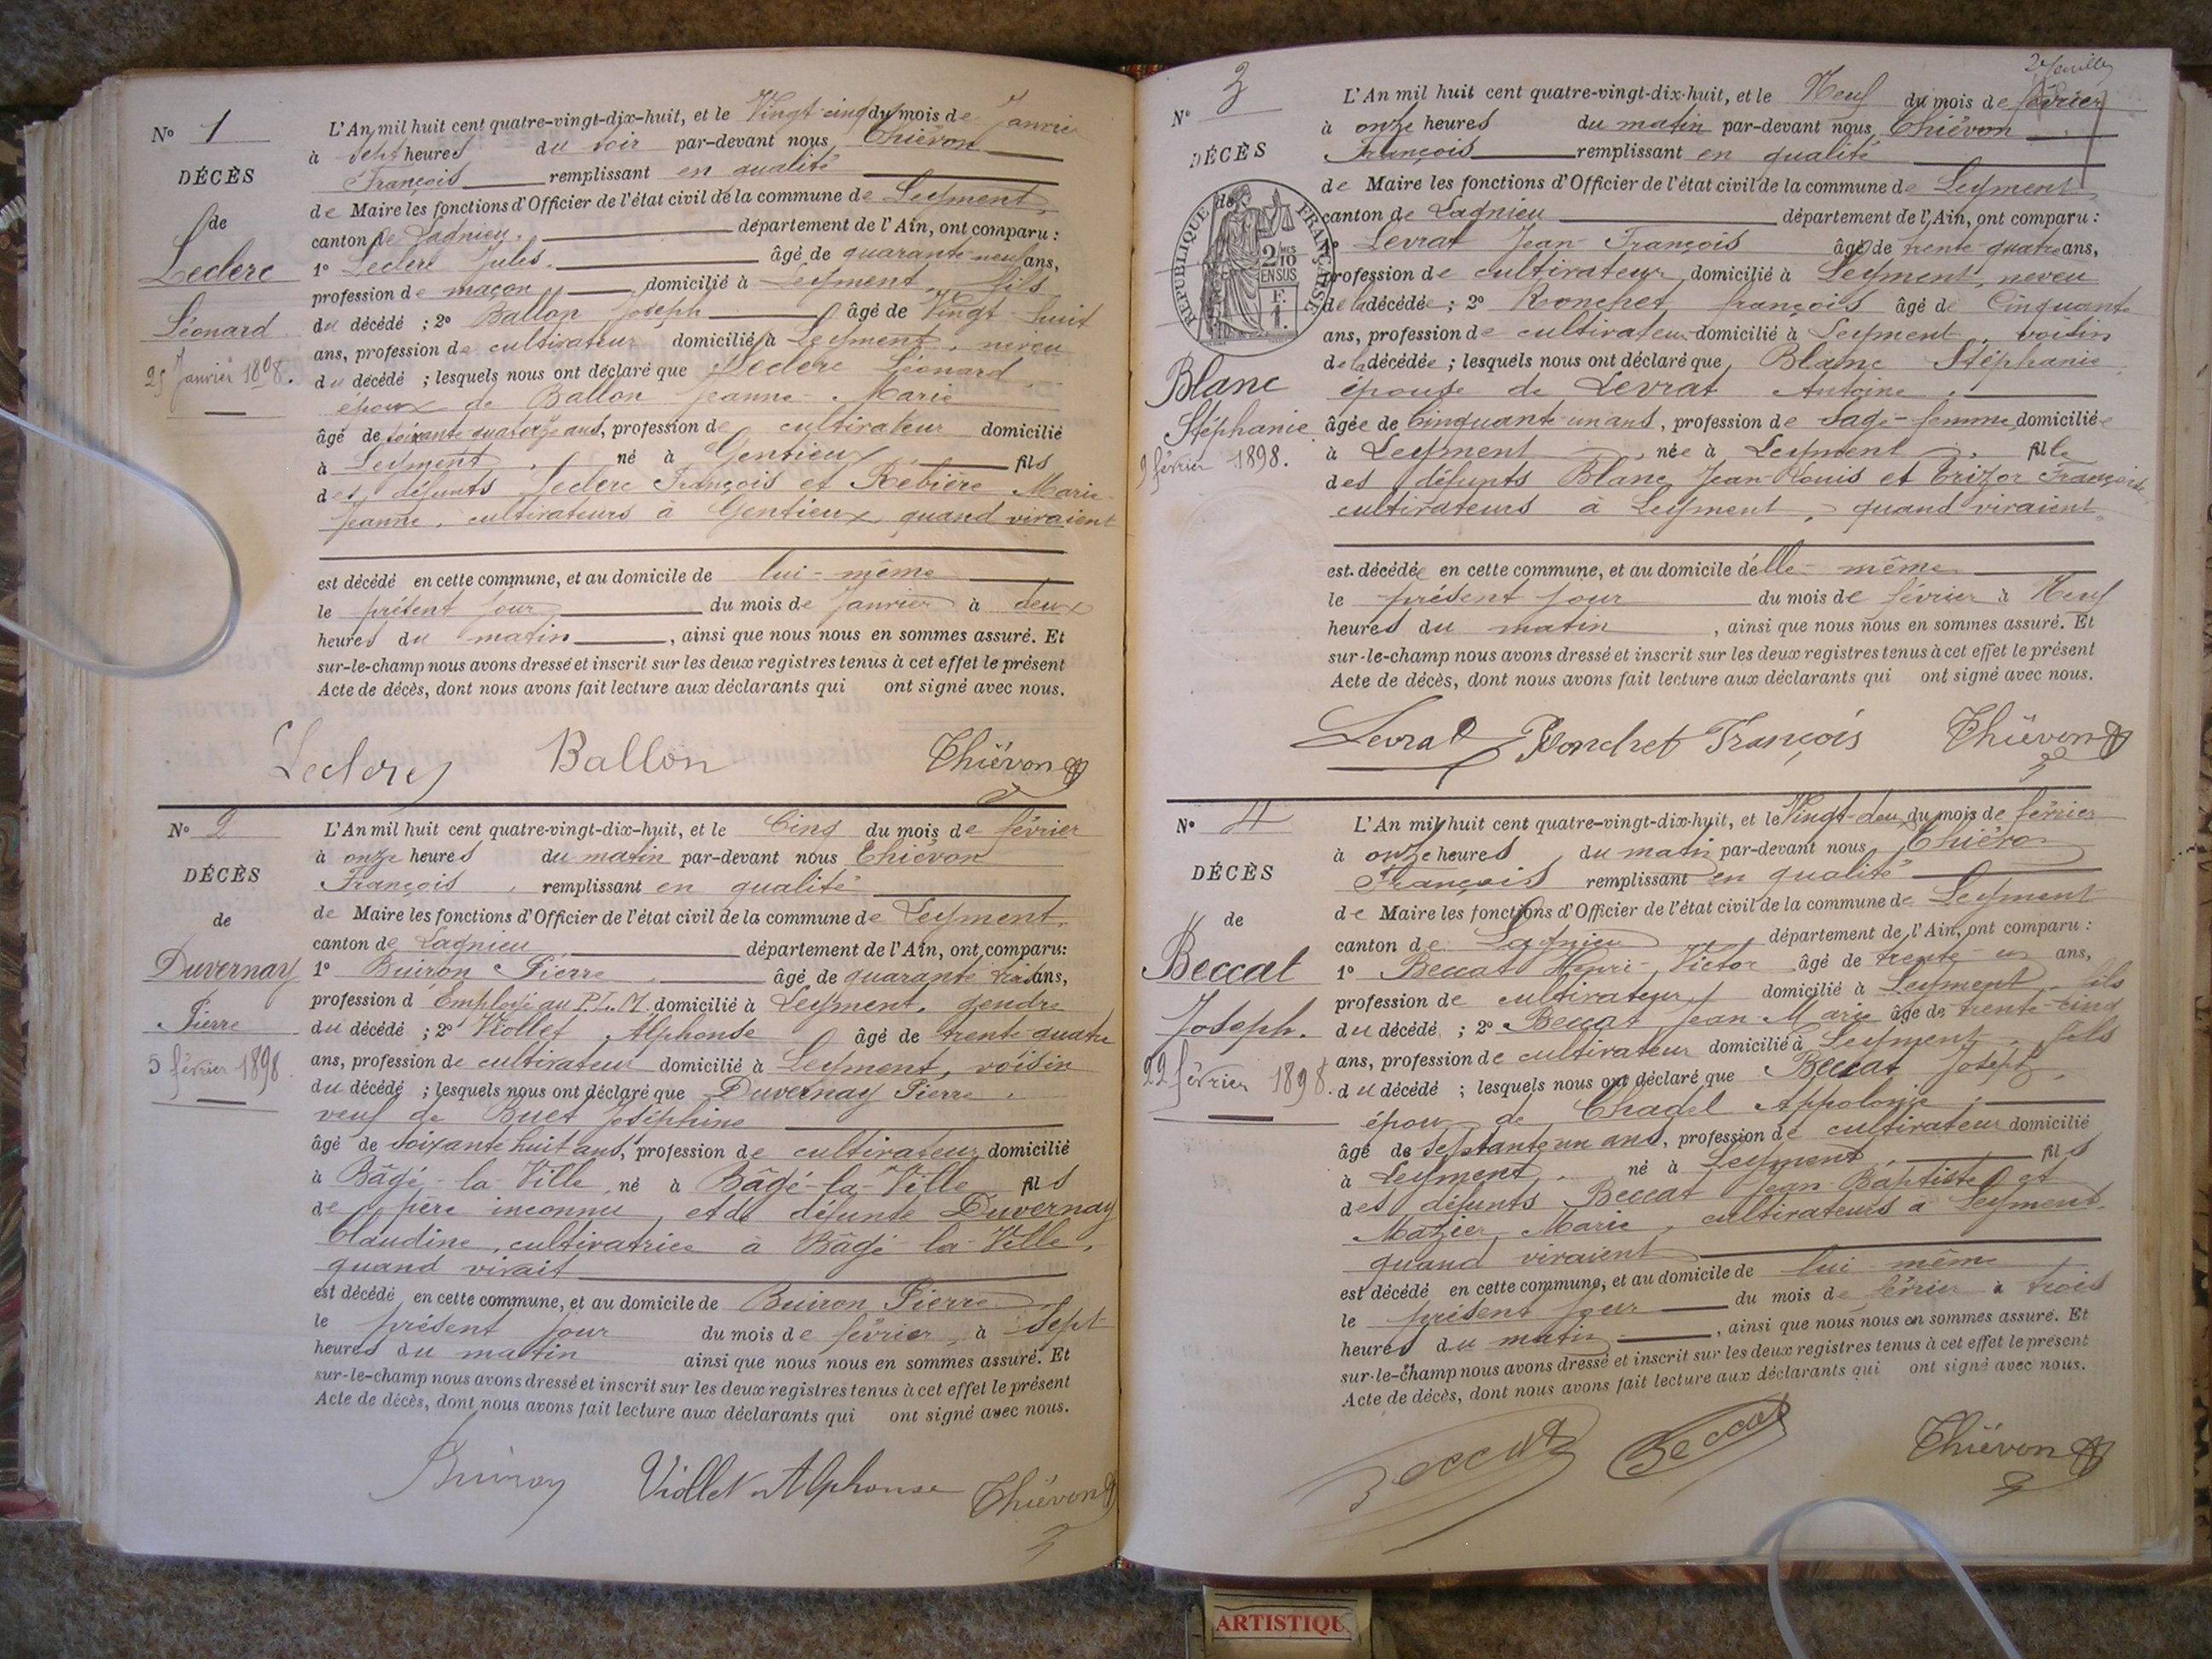 N° 1
DÉCÈS
de
Leclerc
Léonard
25 Janvier 1898.
L'An mil huit cent quatre-vingt-dix-huit, et le Vingt-cinq du mois de Janvier
à sept heures du soir par-devant nous Thiévon
François remplissant en qualité
de Maire les fonctions d'Officier de l'état civil de la commune de Leyment,
canton de Lagnieu. département de l'Ain, ont comparu :
1° Leclerc Jules. âgé de quarante-neuf ans,
profession de maçon, domicilié à Leyment, fils
du décédé ; 2° Ballon Joseph âgé de Vingt-huit
ans, profession de cultivateur domicilié à Leyment, neveu
du décédé ; lesquels nous ont déclaré que Leclerc Léonard
époux de Ballon Jeanne-Marie
âgé de soixante quatorze ans, profession de cultivateur domicilié
à Leyment, né à Gentioux fils
des défunts Leclerc François et Rebière Marie-
Jeanne, cultivateurs à Gentioux, quand vivaient
est décédé en cette commune, et au domicile de lui-même
le présent jour du mois de Janvier à deux
heures du matin, ainsi que nous nous en sommes assuré. Et
sur-le-champ nous avons dressé et inscrit sur les deux registres tenus à cet effet le présent
Acte de décès, dont nous avons fait lecture aux déclarants qui ont signé avec nous.
Leclerc Ballon Thiévon
N° 2
DÉCÈS
de
Duvernay
Pierre
5 février 1898.
L'An mil huit cent quatre-vingt-dix-huit, et le Cinq du mois de février
à onze heures du matin par-devant nous Thiévon
François, remplissant en qualité
de Maire les fonctions d'Officier de l'état civil de la commune de Leyment,
canton de Lagnieu département de l'Ain, ont comparu :
1° Buiron Pierre âgé de quarante trois ans,
profession d'Employé au P.L.M. domicilié à Leyment, gendre
du décédé ; 2° Viollet Alphonse âgé de trente-quatre
ans, profession de cultivateur domicilié à Leyment, voisin
du décédé ; lesquels nous ont déclaré que Duvernay Pierre,
veuf de Buet Joséphine
âgé de soixante huit ans, profession de cultivateur, domicilié
à Bâgé-la-Ville, né à Bâgé-la-Ville fils
de père inconnu, et de défunte Duvernay
Claudine, cultivatrice à Bâgé-la-Ville,
quand vivait
est décédé en cette commune, et au domicile de Buiron Pierre
le présent jour du mois de février, à sept
heures du matin ainsi que nous nous en sommes assuré. Et
sur-le-champ nous avons dressé et inscrit sur les deux registres tenus à cet effet le présent
Acte de décès, dont nous avons fait lecture aux déclarants qui ont signé avec nous.
Buiron Viollet Alphonse Thiévon
2e feuillet
N° 3
DÉCÈS
de
RÉPUBLIQUE FRANÇAISE
2 MES
10
EN SUS
Blanc
Stéphanie
9 février 1898.
L'An mil huit cent quatre-vingt-dix-huit, et le Neuf du mois de février
à onze heures du matin par-devant nous, Thiévon
François remplissant en qualité
de Maire les fonctions d'Officier de l'état civil de la commune de Leyment,
canton de Lagnieu département de l'Ain, ont comparu :
1° Levrat Jean-François âgé de trente-quatre ans,
profession de cultivateur, domicilié à Leyment, neveu
de la décédée ; 2° Ronchet, françois âgé de Cinquante
ans, profession de cultivateur domicilié à Leyment, voisin
de la décédée ; lesquels nous ont déclaré que Blanc Stéphanie
épouse de Levrat Antoine.
âgée de Cinquante-un ans, profession de Sage-femme, domiciliée
à Leyment, née à Leyment, fille
des défunts Blanc, Jean-Louis et Françoise
cultivateurs à Leyment, quand vivaient
est décédée en cette commune, et au domicile d'elle-même
le présent jour du mois de février à Neuf
heures du matin, ainsi que nous nous en sommes assuré. Et
sur-le-champ nous avons dressé et inscrit sur les deux registres tenus à cet effet le présent
Acte de décès, dont nous avons fait lecture aux déclarants qui ont signé avec nous.
Levrat Ronchet François Thiévon
N° 4
DÉCÈS
de
Beccat
Joseph.
22 février 1898.
L'An mil huit cent quatre-vingt-dix-huit, et le Vingt-deux du mois de février
à onze heures du matin par-devant nous Thiévon
François remplissant en qualité
de Maire les fonctions d'Officier de l'état civil de la commune de Leyment
canton de Lagnieu département de l'Ain, ont comparu :
1° Beccat Henri-Victor âgé de trente-un ans,
profession de cultivateur, domicilié à Leyment, fils
du décédé ; 2° Beccat, Jean-Marie âgé de trente-cinq
ans, profession de cultivateur domicilié à Leyment, fils
du décédé ; lesquels nous ont déclaré que Beccat Joseph,
époux de Chadel Appolonie,
âgé de septante un ans, profession de cultivateur domicilié
à Leyment, né à Leyment, fils
des défunts Beccat Jean-Baptiste et
Mazier, Marie, cultivateurs à Leyment,
quand vivaient
est décédé en cette commune, et au domicile de lui-même
le présent jour du mois de février à trois
heures du matin, ainsi que nous nous en sommes assuré. Et
sur-le-champ nous avons dressé et inscrit sur les deux registres tenus à cet effet le présent
Acte de décès, dont nous avons fait lecture aux déclarants qui ont signé avec nous.
Beccat Beccat Thiévon
ARTISTIQU